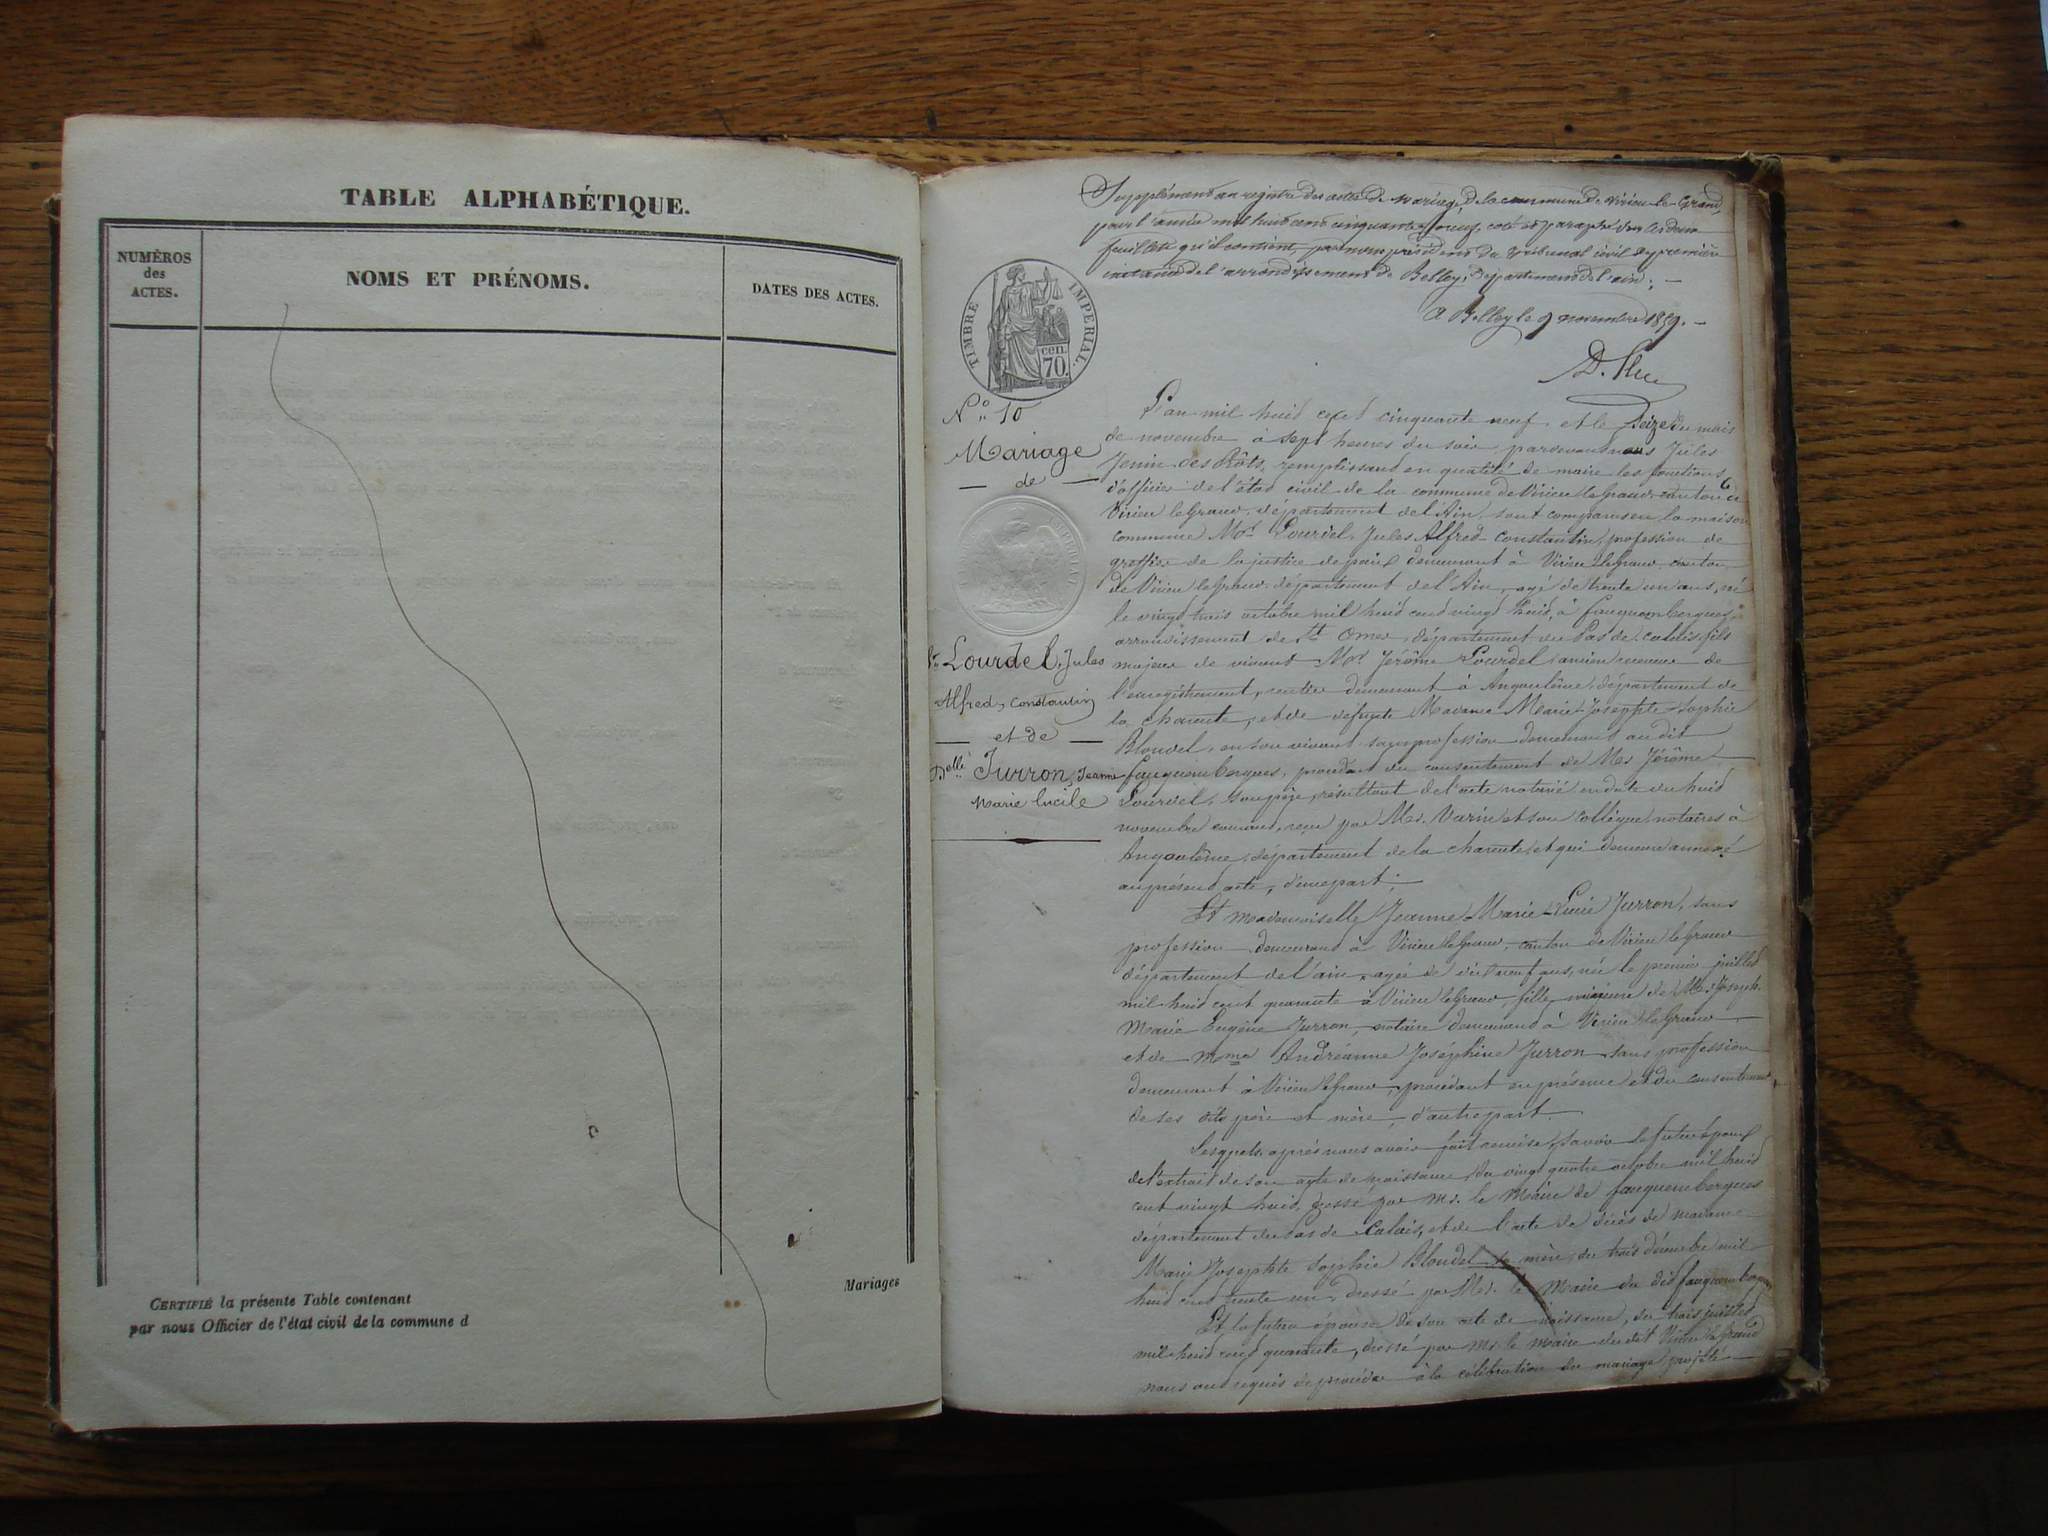 TABLE ALPHABÉTIQUE.
NUMÉROS
des
ACTES.
NOMS ET PRÉNOMS.
DATES DES ACTES.
Mariages
CERTIFIÉ la présente Table contenant
par nous Officier de l'état civil de la commune d
Supplément au registre des actes de mariage, de la commune de Virieu-le-Grand,
pour l'année mil huit cent cinquante neuf, coté et paraphé sur les deux
feuillets qu'il contient, par nous président du tribunal civil de première
instance de l'arrondissement de Belley, département de l'ain; —
A Belley le 9 novembre 1859. —
TIMBRE IMPÉRIAL.
cen.
70.
N.° 10
Mariage
— de —
Lourdel, Jules
Alfred, Constantin
— et de —
Delle Jurron, Jeanne
Marie lucile
L'an mil huit cent cinquante neuf et le Seize du mois
de novembre à sept heures du soir pardevant nous Jules
Jenin des Prôts, remplissant en qualité de maire les fonctions
d'officier de l'état civil de la commune de Virieu le Grand, canton de
Virieu le Grand, département de l'Ain, sont comparus en la maison
commune Mr Lourdel, Jules Alfred Constantin, profession de
greffier de la justice de paix demeurant à Virieu le Grand, canton
de Virieu le Grand département de l'Ain, agé de trente un ans, né
le vingt trois octobre mil huit cent vingt huit, à fauquembergues,
arrondissement de St Omer, département du Pas de calais, fils
majeur de vivant Mr Jérôme Lourdel, ancien receveur de
l'enregistrement, rentier demeurant à Angoulême, département de
la charente, et de défunte Madame Marie-Josephte Sophie
Blondel, en son vivant sans profession demeurant au dit
fauquembergues, procédant du consentement de Mr Jérôme
Lourdel, son père, résultant de l'acte notarié en date du huit
novembre courant, reçu par Me. Varin et son collègue, notaires à
Angoulême, département de la charente, et qui demeure annexé
au présent acte, d'une part;
Et mademoiselle Jeanne-Marie-Lucie Jurron, sans
profession demeurant à Virieu le Grand, canton de Virieu le Grand
département de l'ain, agée de dix neuf ans, née le premier juillet
mil huit cent quarante à Virieu le Grand, fille mineure de Mr Joseph
Marie Eugène Jurron, notaire demeurant à Virieu le Grand
et de Mme Andréanne Joséphine Jurron sans profession
demeurant à Virieu le Grand, procédant en présence et du consentement
de ses dits père et mère, d'autre part.
Lesquels après nous avoir fait remise, savoir le futur époux
de l'extrait de son acte de naissance du vingt quatre octobre mil huit
cent vingt huit, dressé par Mr. le Maire de fauquembergues
département du Pas de Calais, et de l'acte de décès de madame
Marie Josephte Sophie Blondel sa mère, du trois décembre mil
huit cent trente un, dressé par Mr. le Maire du dit fauquembergues
Et la future épouse de son acte de naissance, du trois juillet
mil huit cent quarante, dressé par Mr. le Maire du dit Virieu le Grand
nous ont requis de procéder à la célébration du mariage projeté